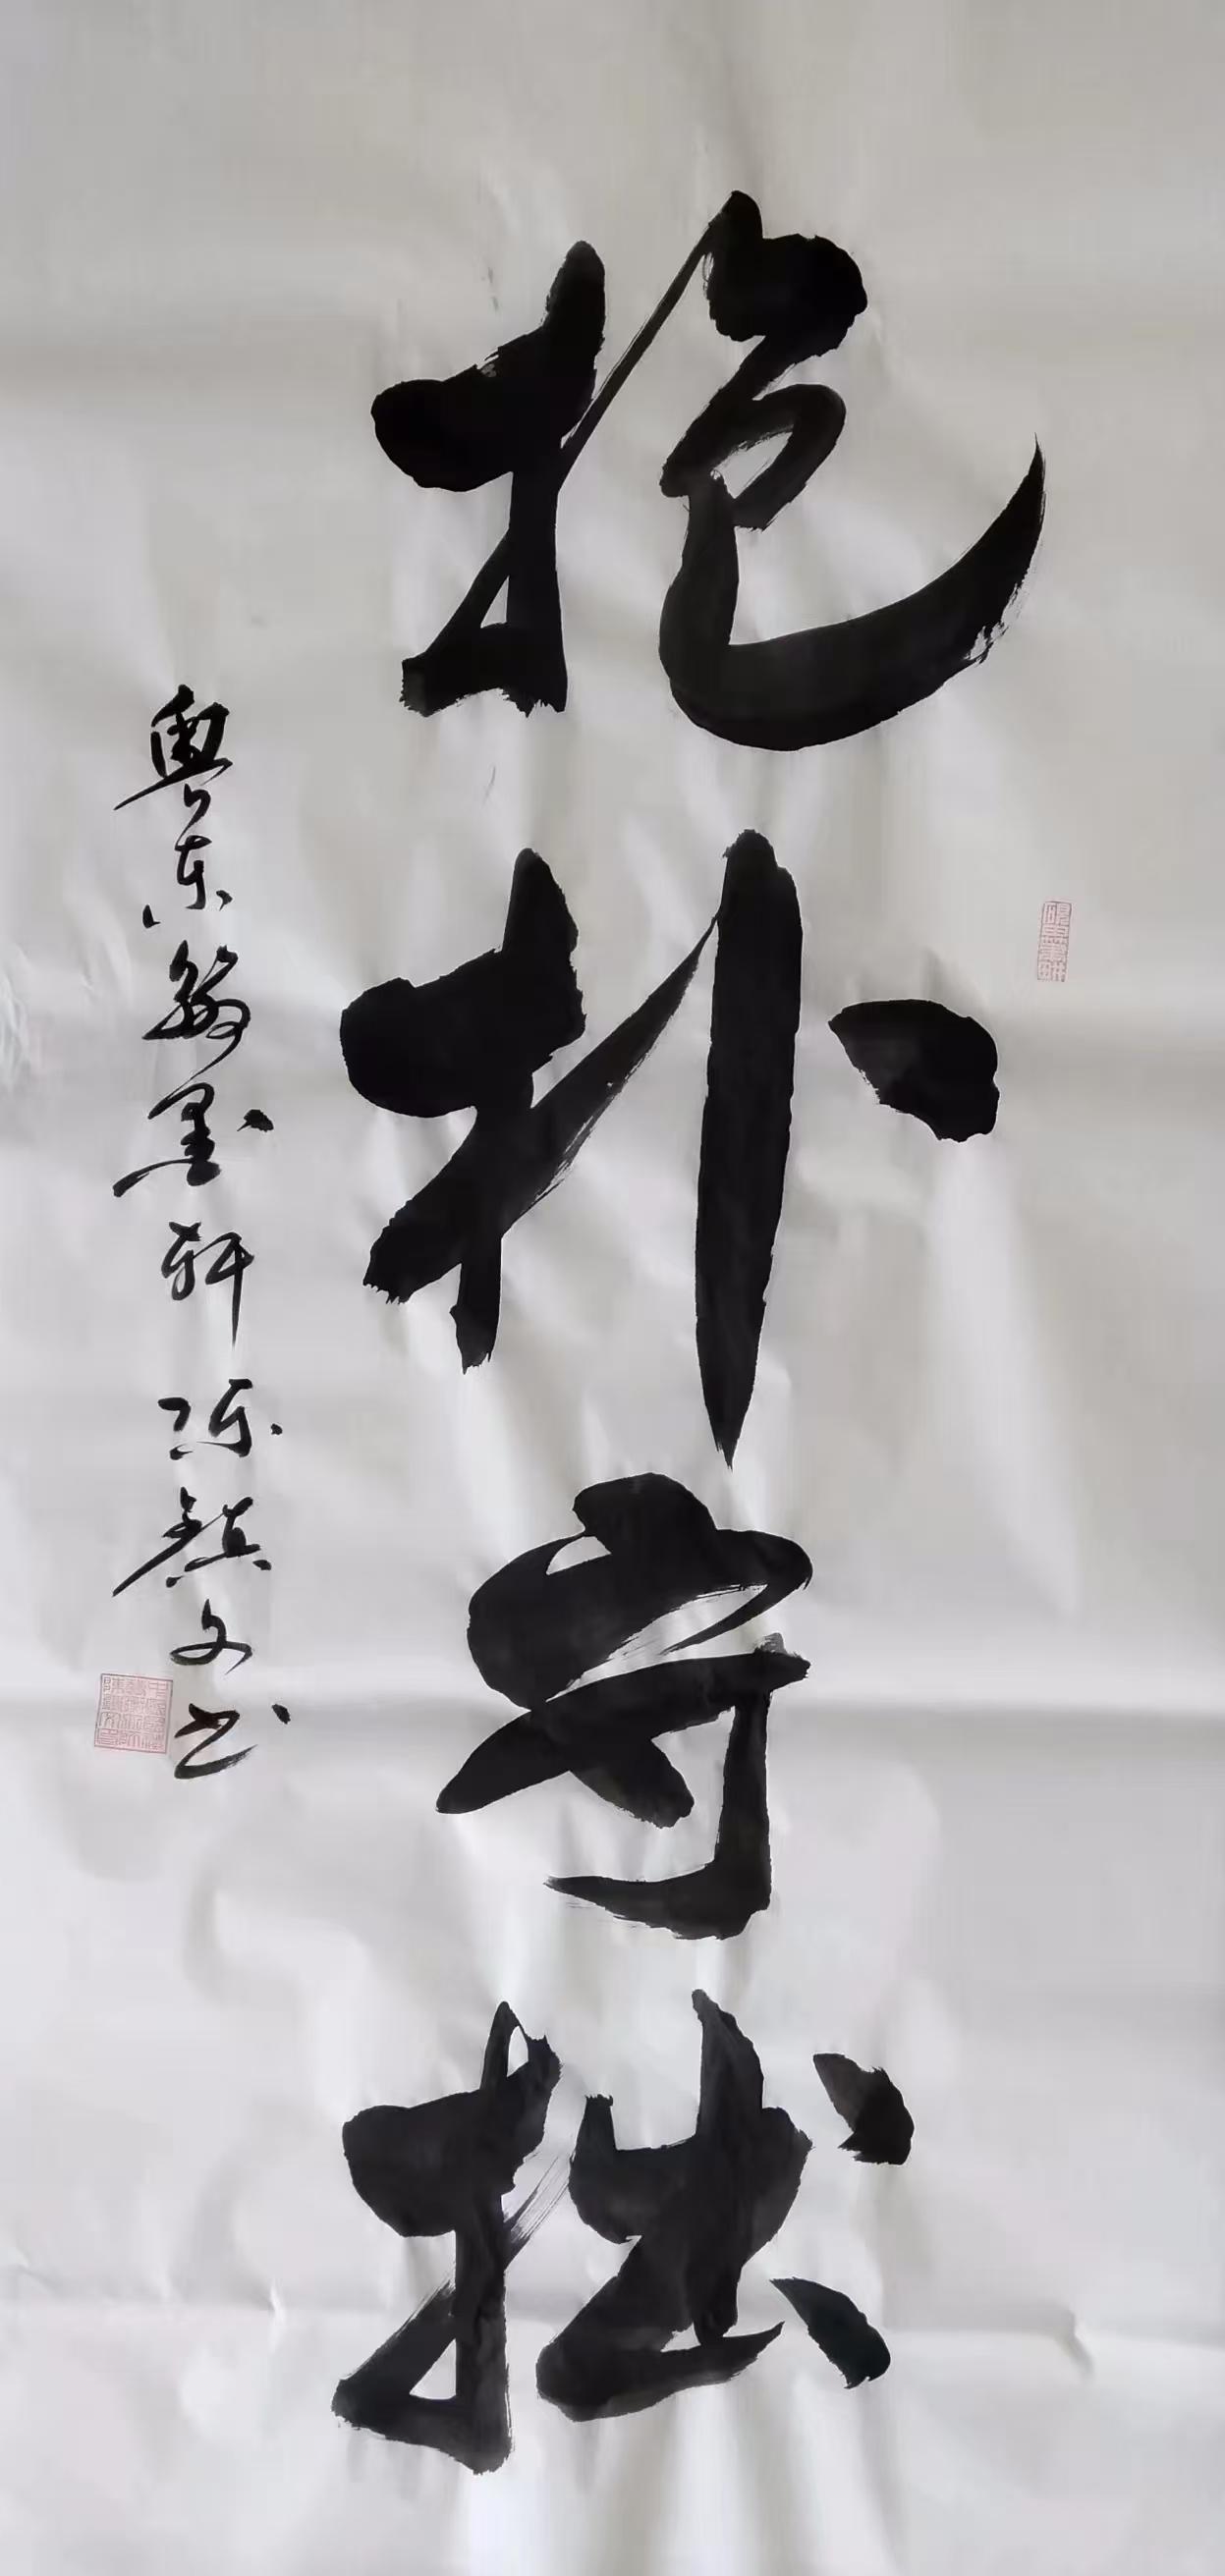 抱朴守拙
粤东敏墨轩 陈镇文书